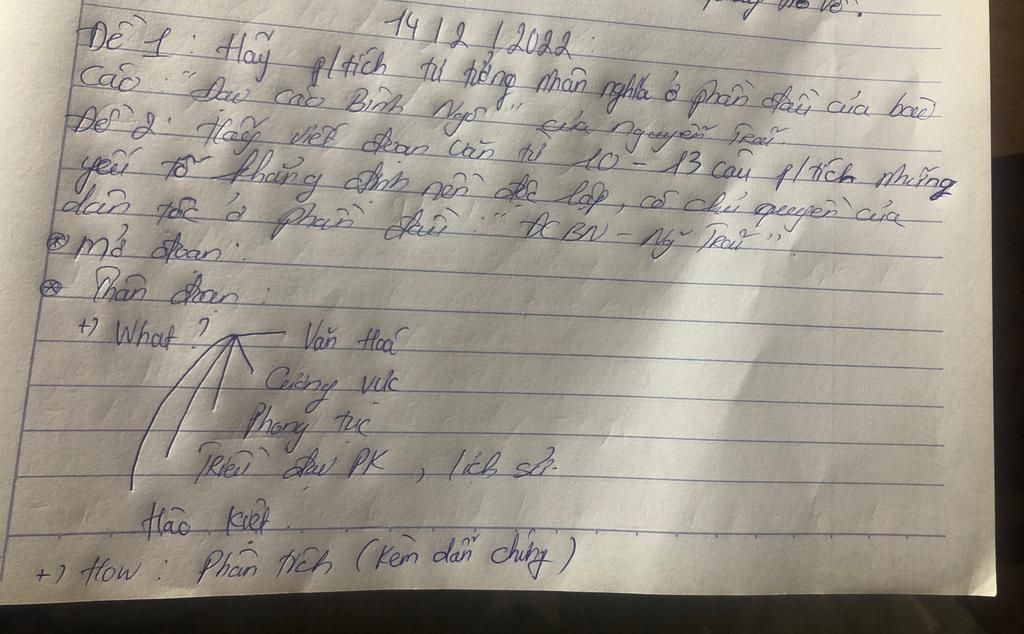 14/2/2022
Đề 1: Hãy p/tích tư tưởng nhân nghĩa ở phần đầu của bài
cáo "Đại cáo Bình Ngô" của Nguyễn Trãi.
Đề 2: Hãy viết đoạn văn từ 10-13 câu p/tích những
yếu tố khẳng định nền độc lập, có chủ quyền của
dân tộc ở phần đầu: "ĐCBN - Ng Trãi".
⊛ Mở đoạn:
⊛ Thân đoạn:
+) What? Văn Hoá
Cương vực
Phong tục
Triều đại PK, lịch sử.
Hào Kiệt.
+) How: Phân tích (kèm dẫn chứng)